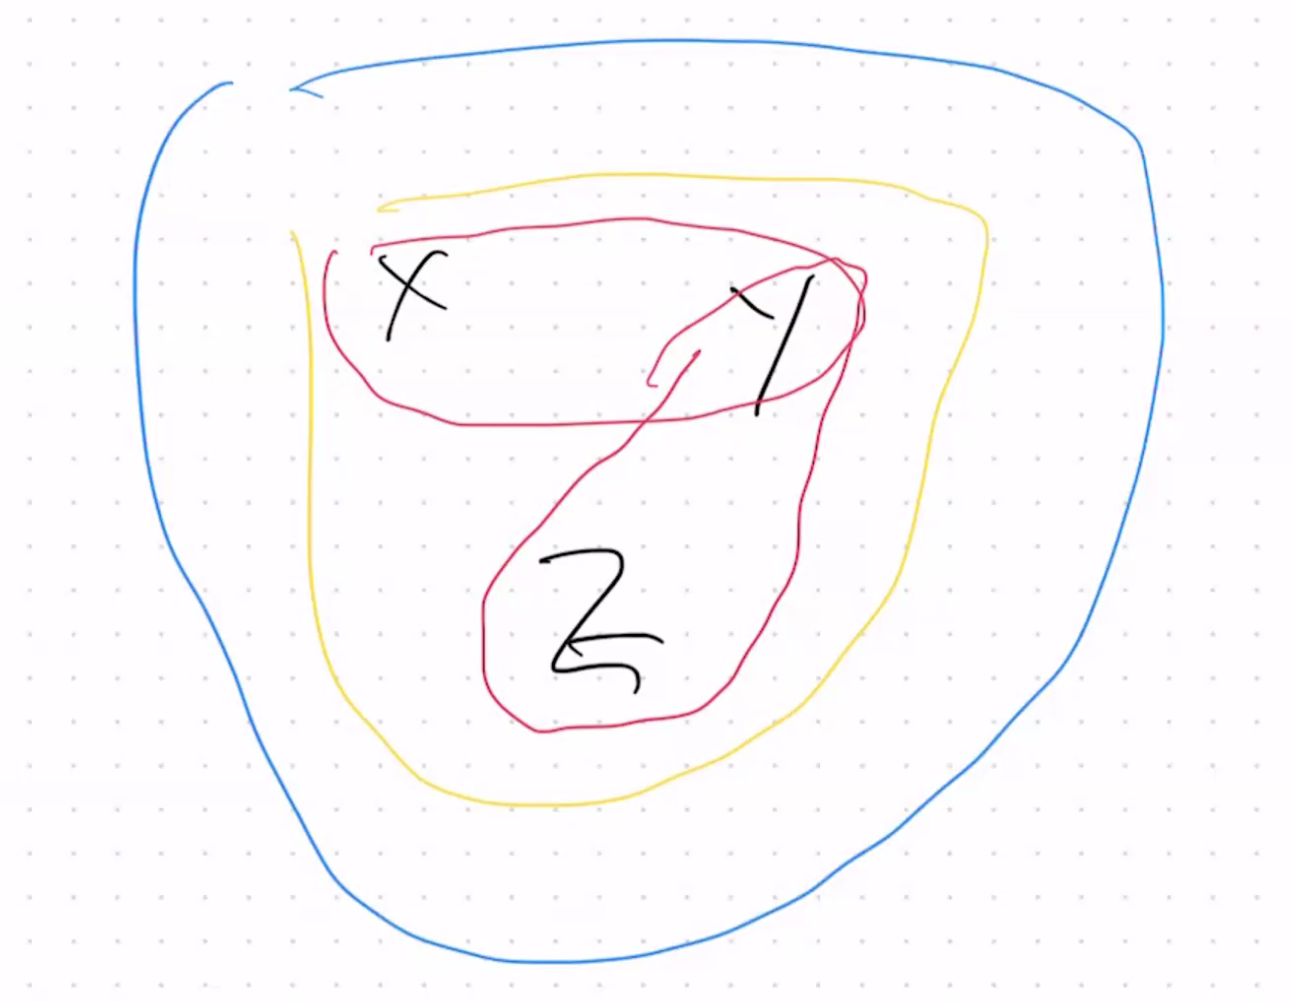 X Y
Z